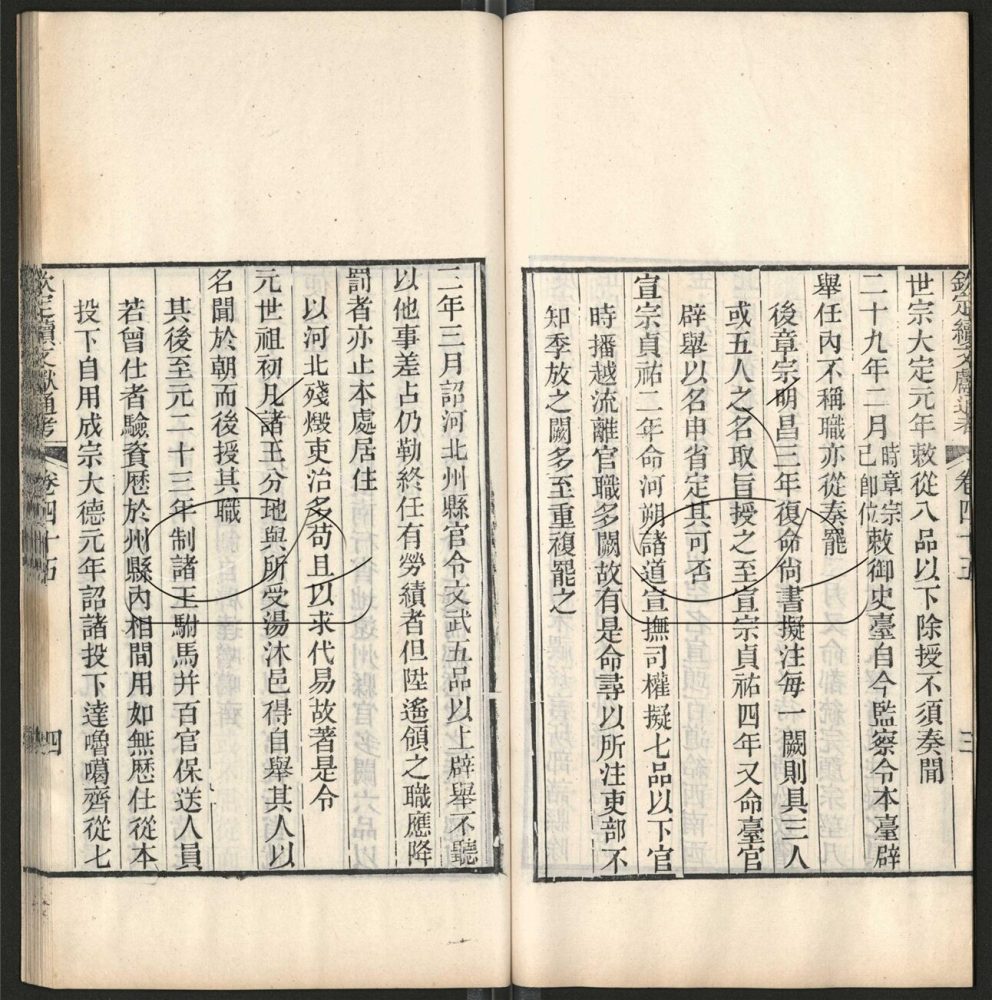 欽定續文獻通考 卷四十五 三
世宗大定元年敕從八品以下除授不須奏聞
二十九年二月時章宗已卽位敕御史臺自今監察令本臺辟
舉任內不稱職亦從奏罷
後章宗明昌三年復命尚書擬注每一闕則具三人
或五人之名取旨授之至宣宗貞祐四年又命臺官
辟舉以名申省定其可否
宣宗貞祐二年命河朔諸道宣撫司權擬七品以下官
時播越流離官職多闕故有是命尋以所注吏部不
知季放之闕多至重複罷之
三年三月詔河北州縣官令文武五品以上辟舉不聽
以他事差占仍勒終任有勞績者但陞遙領之職應降
罰者亦止本處居住
以河北殘燬吏治多苟且以求代易故著是令
元世祖初凡諸王分地與所受湯沐邑得自舉其人以
名聞於朝而後授其職
其後至元二十三年制諸王駙馬并百官保送人員
若曾仕者驗資歷於州縣內相間用如無歷仕從本
投下自用成宗大德元年詔諸投下達嚕噶齊從七
欽定續文獻通考 卷四十五 四